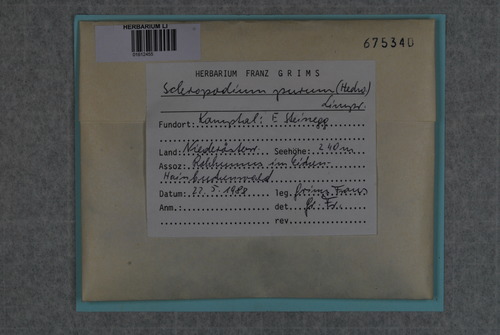 HERBARIUM LI
675340
HERBARIUM FRANZ GRIMS
Scleropodium purum (Hedw)
Limpr.
Fundort: Kamptal: E Steinegg
Land: Niederösterr. Seehöhe: 240m
Assoz: im Eichen-
Hainbuchenwald
Datum: 22.5.1988 leg. Grims Franz
Anm.: det. Gr. Fr.
rev.